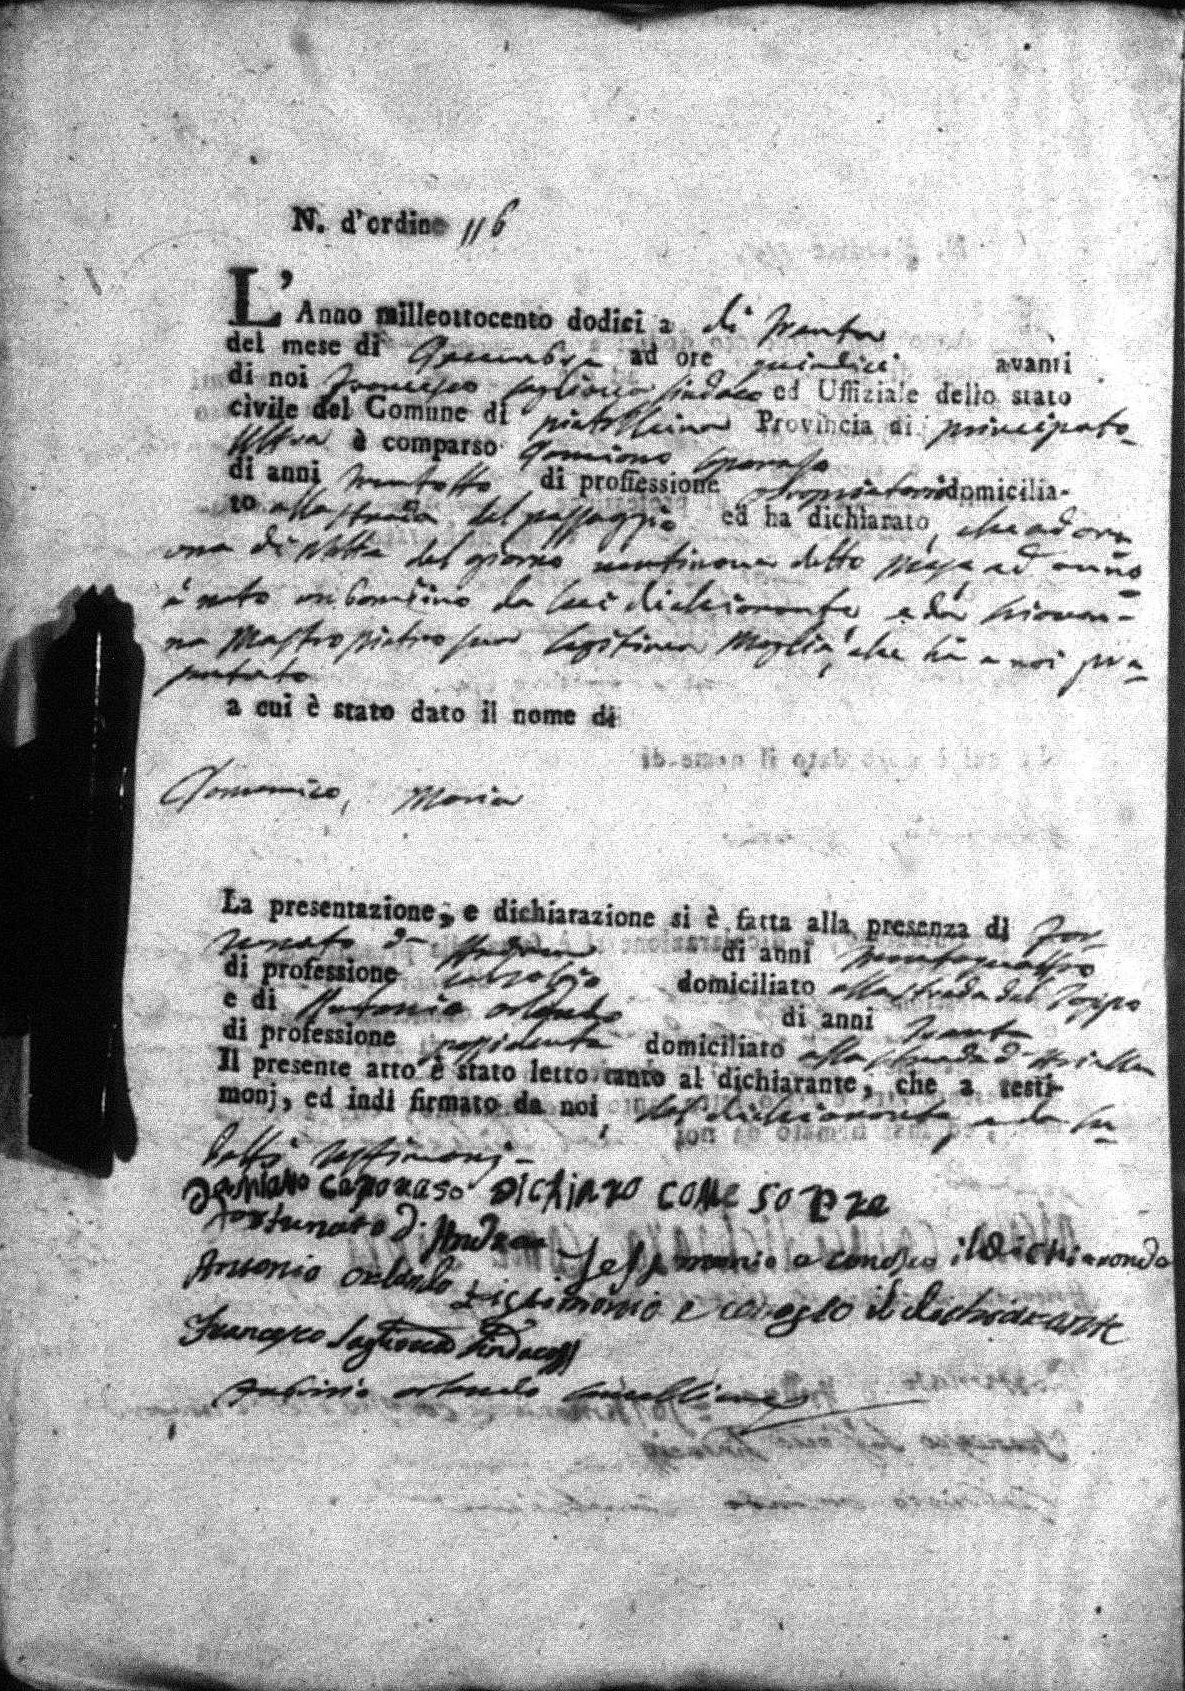 N. d'ordine 116
L'Anno milleottocento dodici a di trenta
del mese di Decembre ad ore quindici avanti
di noi Francesco Sagliocca Sindaco ed Uffiziale dello stato
civile del Comune di pietrelcina Provincia di principato
Ultra è comparso Damiano
di anni trentotto di proffessione domicilia-
to alla strada del passaggio ed ha dichiarato, che ad ora
una di notte del giorno ventinove detto mese ad anno
è nato un bambino da lui dichiarante, e da Giovan-
na Mastropietro sua legitima Moglie, che hà a noi pre-
sentato
a cui è stato dato il nome di
Domenico, Maria
La presentazione, e dichiarazione si è fatta alla presenza di For-
tunato d' Andrea di anni trentaquattro
di professione domiciliato alla strada del
e di Antonio orlando di anni trenta
di professione possidente domiciliato alla strada d'
Il presente atto è stato letto tanto al dichiarante, che a testi-
monj, ed indi firmato da noi, dal dichiarante, e da su-
detti testimonj-
damiano caporaso dichiaro come sopre
Fortunato d. Andrea Testimonio e conosco il dichiarando
Antonio orlando Testimonio e conosco il dechiarante
Francesco Saglioccà Sindaco
orlando cancelliere